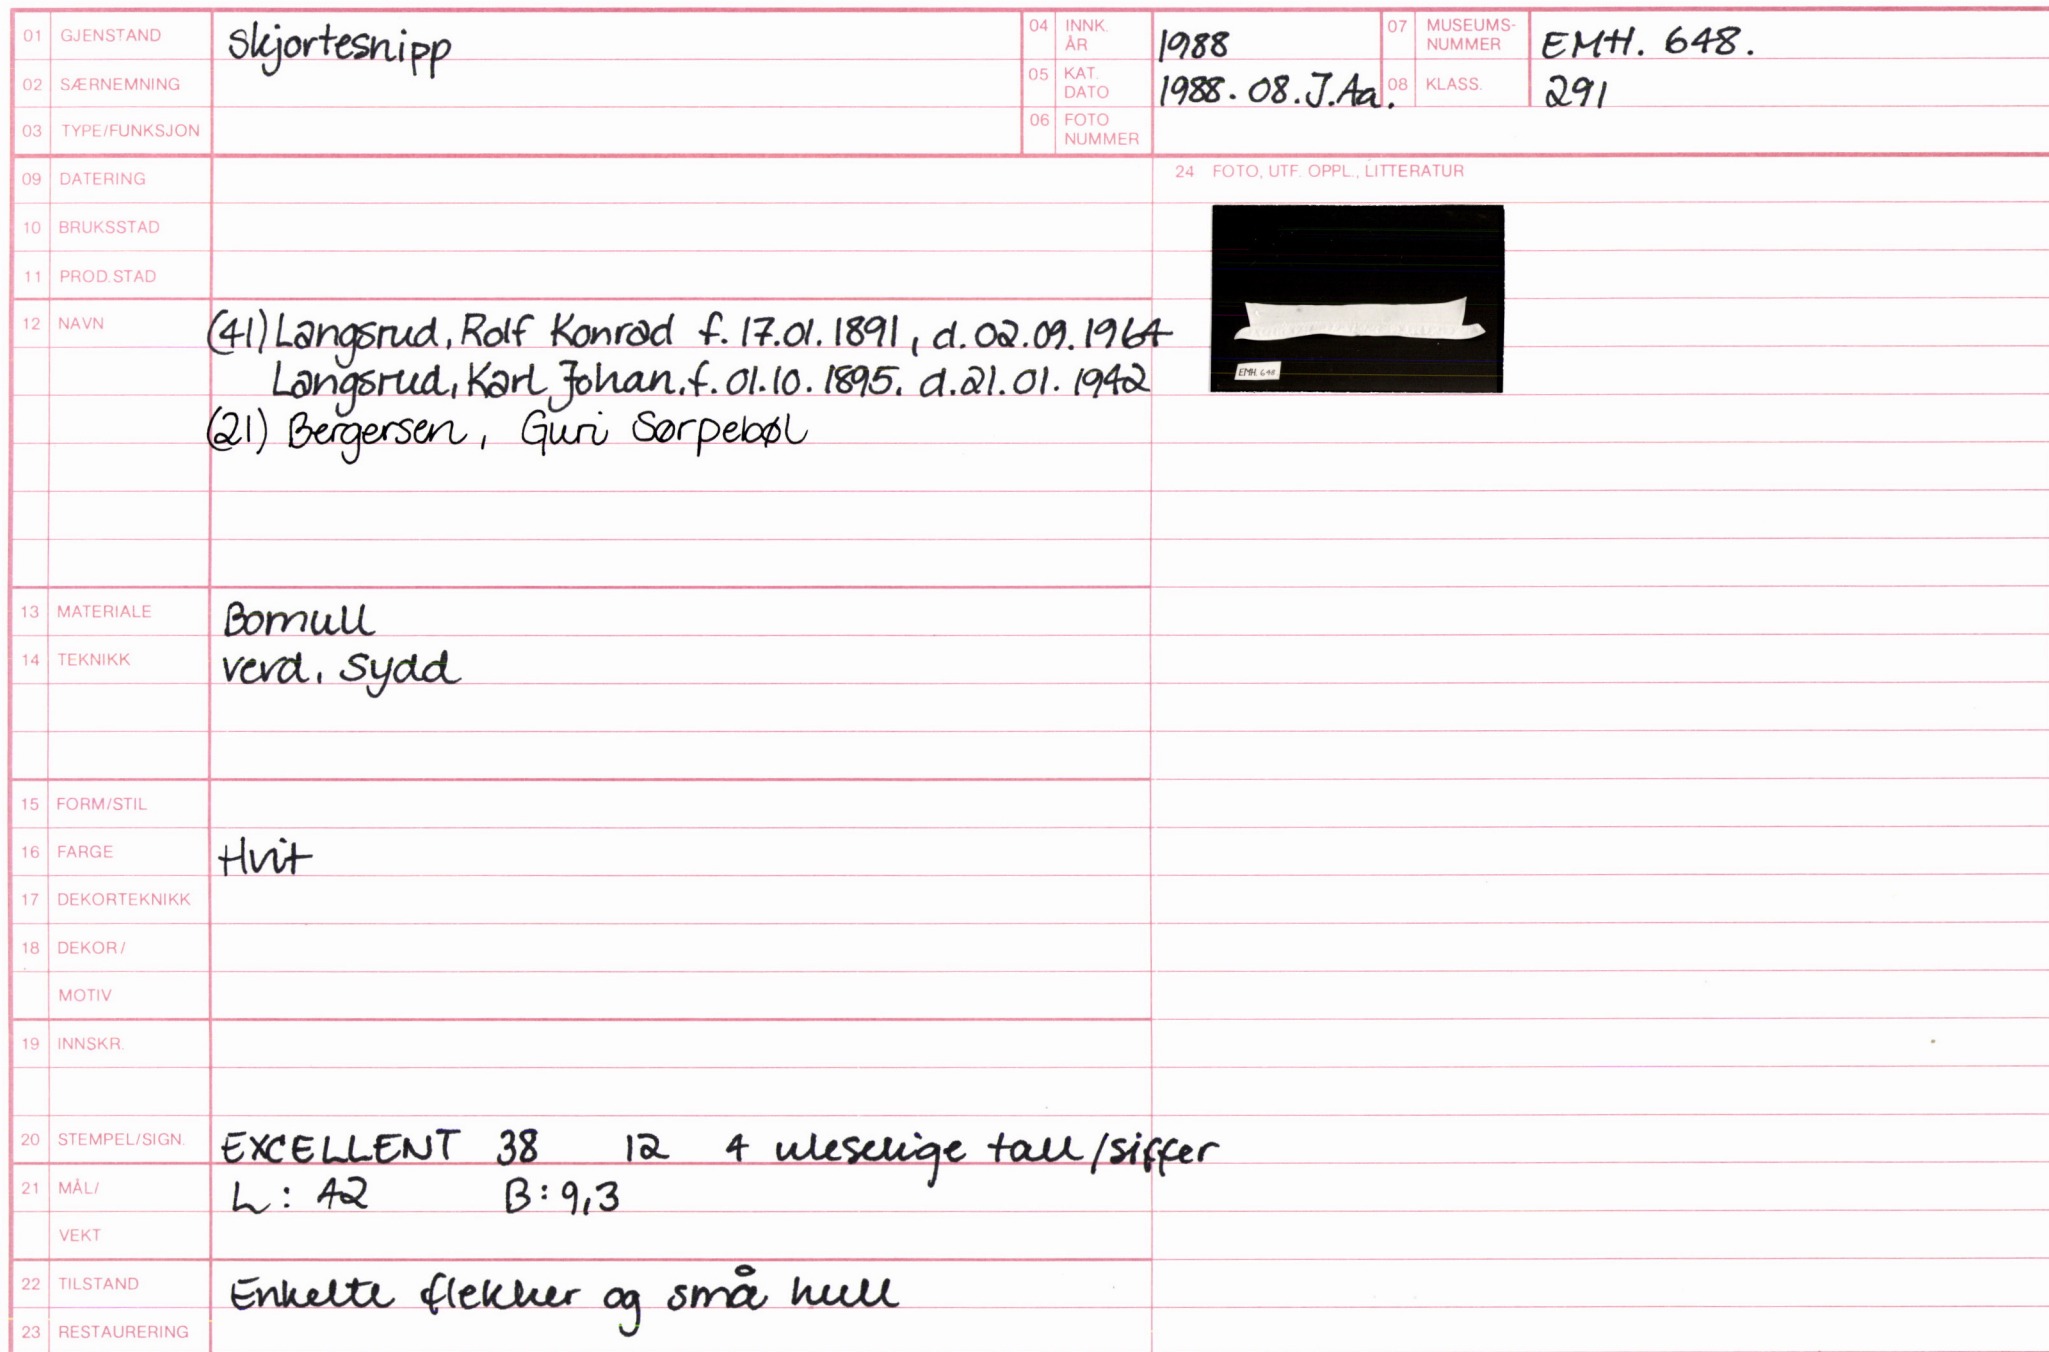 01 GJENSTAND Skjortesnipp
02 SÆRNEMNING
03 TYPE/FUNKSJON
04 INNK. ÅR 1988
05 KAT. DATO 1988.08.J.Aa.
06 FOTO NUMMER
07 MUSEUMS-NUMMER EMH. 648.
08 KLASS. 291
09 DATERING
10 BRUKSSTAD
11 PROD.STAD
12 NAVN (41) Langsrud, Rolf Konrad f. 17.01.1891, d.02.09.1964
Langsrud, Karl Johan. f. 01.10.1895. d.21.01.1942
(21) Bergersen, Guri Sørpebøl
13 MATERIALE Bomull
14 TEKNIKK Vevd, sydd
15 FORM/STIL
16 FARGE Hvit
17 DEKORTEKNIKK
18 DEKOR/
MOTIV
19 INNSKR.
20 STEMPEL/SIGN. EXCELLENT 38 12 4 uleselige tall/siffer
21 MÅL/ L: 42 B: 9,3
VEKT
22 TILSTAND Enkelte flekker og små hull
23 RESTAURERING
24 FOTO, UTF. OPPL., LITTERATUR
EMH. 648.